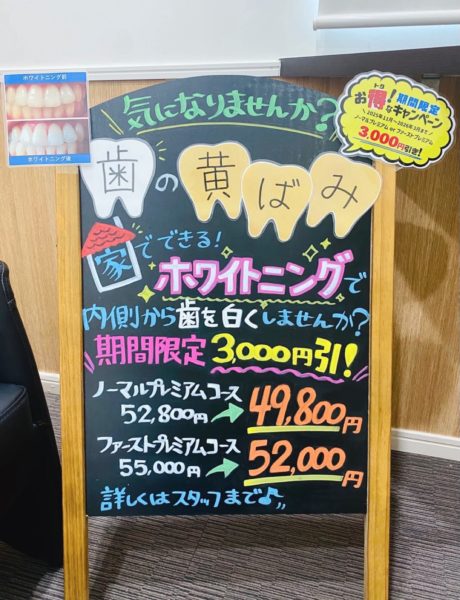 ホワイトニング前
ホワイトニング後
トク
お得!な
期間限定
キャンペーン
ノーマルプレミアム or ファーストプレミアム
3,000円引き!
気になりませんか?
歯の黄ばみ
家でできる!
ホワイトニングで
内側から歯を白くしませんか?
期間限定 3,000円引!
ノーマルプレミアムコース
52,800円→49,800円
ファーストプレミアムコース
55,000円→52,000円
詳しくはスタッフまで♪